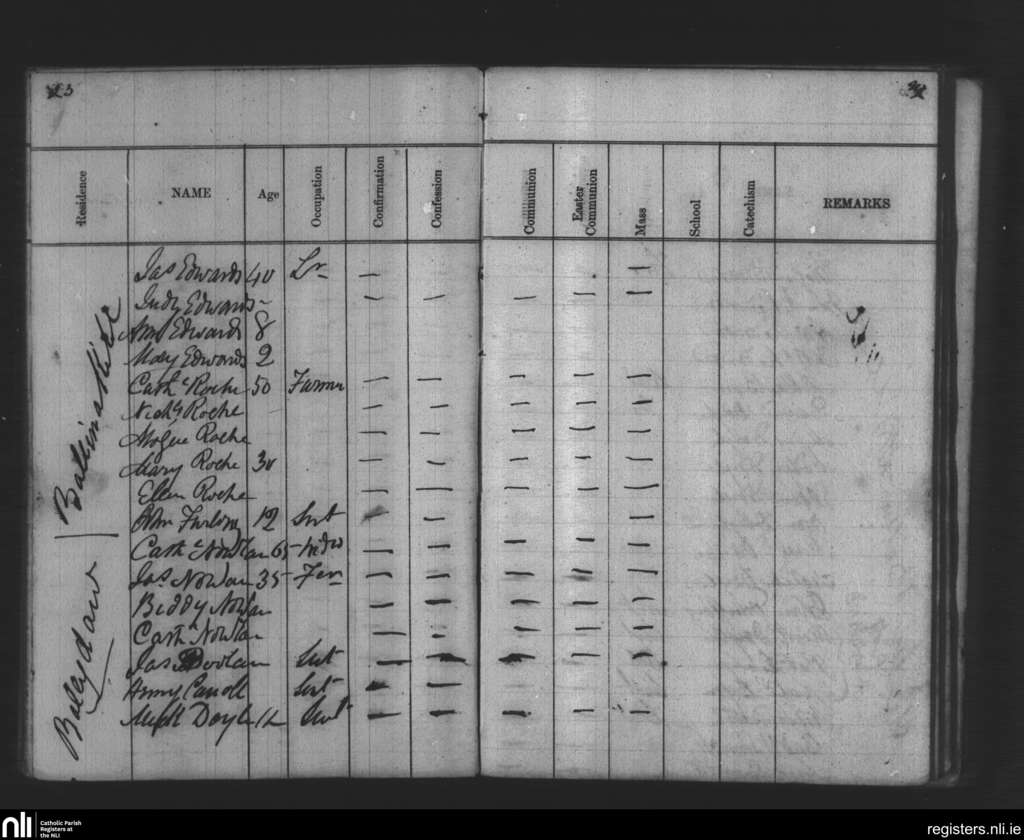 23
24
Residence NAME Age Occupation Confirmation Confession Communion Easter Communion Mass School Catechism REMARKS
Jas Edwards 40 Lr — —
Judy Edwards - — — — — —
Ann Edwards 8
Mary Edwards 2
Cathe Roche 50 Farmer — — — — —
Nichs Roche — — — — —
Mogue Roche — — — — —
Mary Roche 30 — — — — —
Ellen Roche — — — — —
John Furlong 12 Svt — —
Cathe Nowlan 65 Wido — — — — —
Jas Nowlan 35 Far — — — — —
Biddy Nowlan — — — — —
Cath Nowlan — — — — —
Jas Doolan Svt — — — — —
Carroll Svt — —
Mich Doyle 12 Svt — — — — —
Balaydaw
nli Catholic Parish
Registers at
the NLI
registers.nli.ie